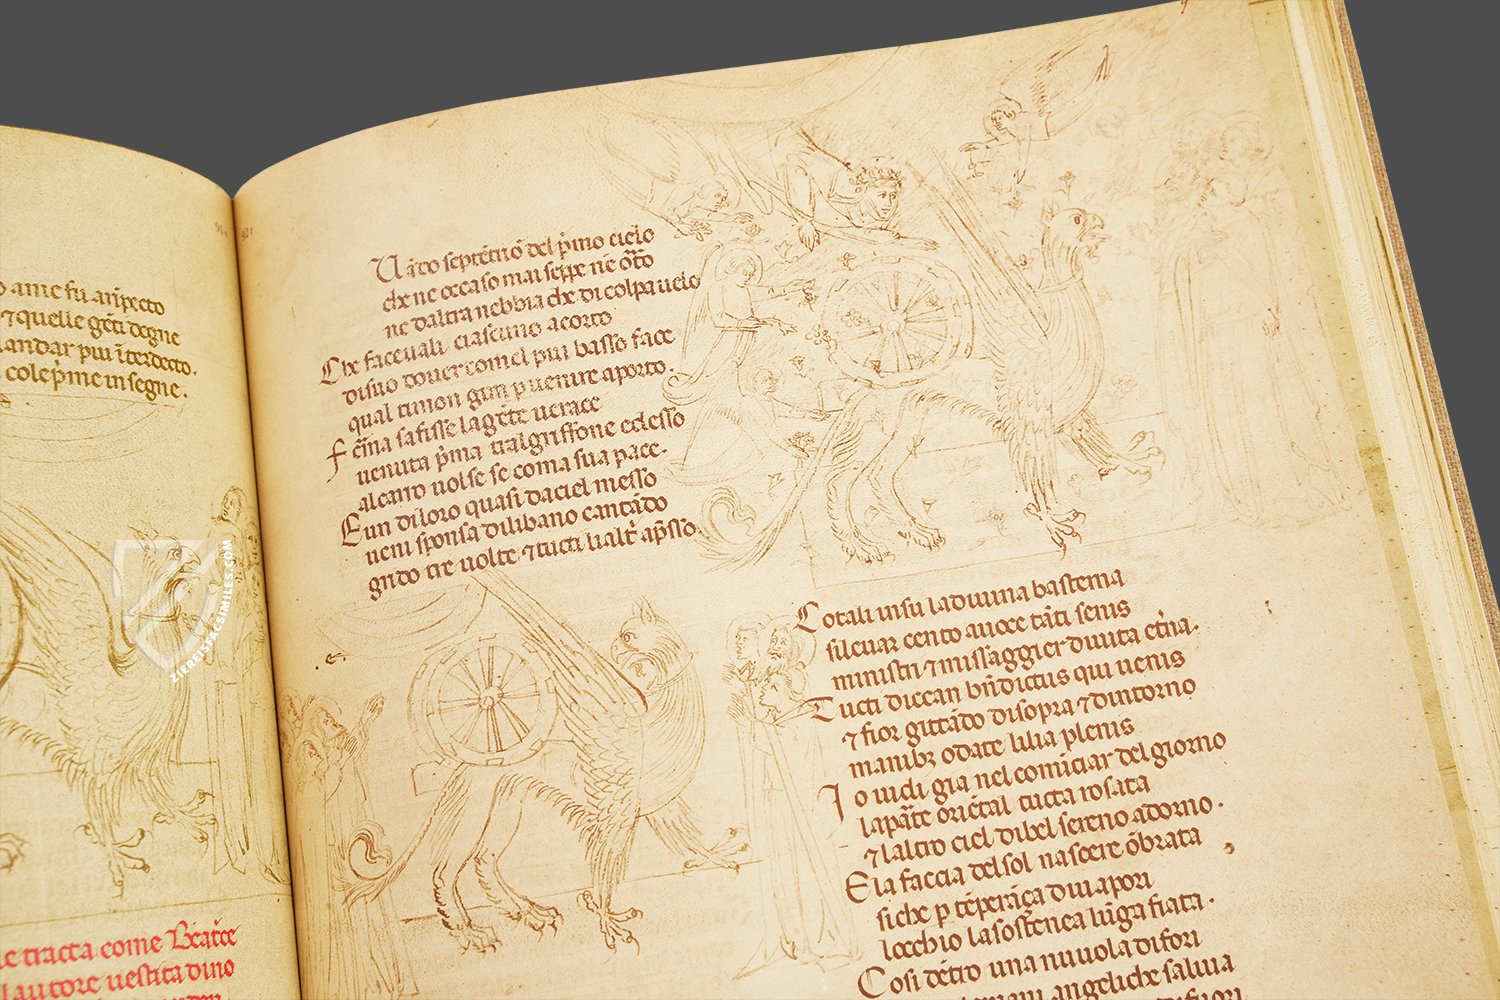 o a me fu a rispecto
⁊ quelle gẽti degne
andar piu ĩterdecto.
cole p̃me insegne.
le tracta come Beatce
lautore vestita dino
Uãdo septẽtriõ del p̃mo cielo
che ne occaso mai seppe ne orto
ne daltra nebbia che di colpa uelo
Che faceuali ciascuno acorto
disuo douer comel piu basso face
qual timon gira p uenire aporto.
Fẽma safisse la gẽte uerace
uenuta p̃ma tralgriffone ed esso
alcarro uolse se coma sua pace.
E un diloro quasi daciel messo
ueni sponsa dilibano cantãdo
grido tre uolte ⁊ tucti lialt̃ ap̃sso.
Cotali insu la diuina basterna
sileuar cento auoce tãti senis
ministri ⁊ messaggier diuita et̃na.
Tucti dicean bñdictus qui uenis
⁊ fior gittãdo disopra ⁊ dintorno
manibꝫ o date lilia plenis
Io uidi gia nel comĩciar del giorno
la pãte oriẽtal tucta rosata
⁊ laltro ciel dibel sereno adorno.
E la faccia del sol nascere õbrata
siche p tẽperãça diuapori
locchio la sostenea lũga fiata.
Cosi dẽtro una nuuola di fiori
angeliche saliua
ZIEREISFACSIMILES.COM